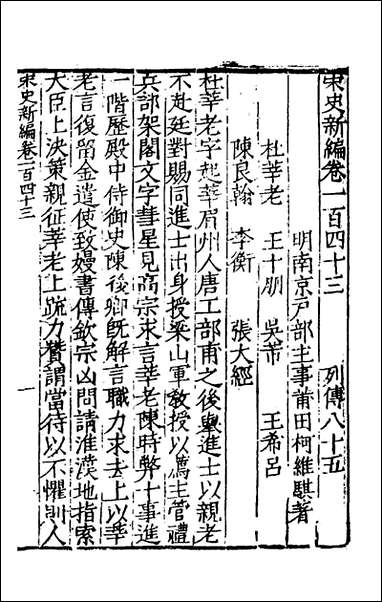 宋史新編卷一百四十三　列傳八十五
明南京戶部主事莆田柯維騏著
杜莘老　王十朋　吳芾　王希呂
陳良翰　李衡　張大經
杜莘老字起莘眉州人唐工部甫之後舉進士以親老
不赴廷對賜同進士出身授梁山軍教授以薦主管禮
兵部架閣文字彗星見高宗求言莘老陳時弊十事進
一階歷殿中侍御史陳俊卿旣解言職力求去上以莘
老言復留金遣使致嫚書傳欽宗凶問請淮漢地指索
大臣上決策親征莘老上疏力贊謂當待以不懼則人
宋史新編卷一百四十三　一